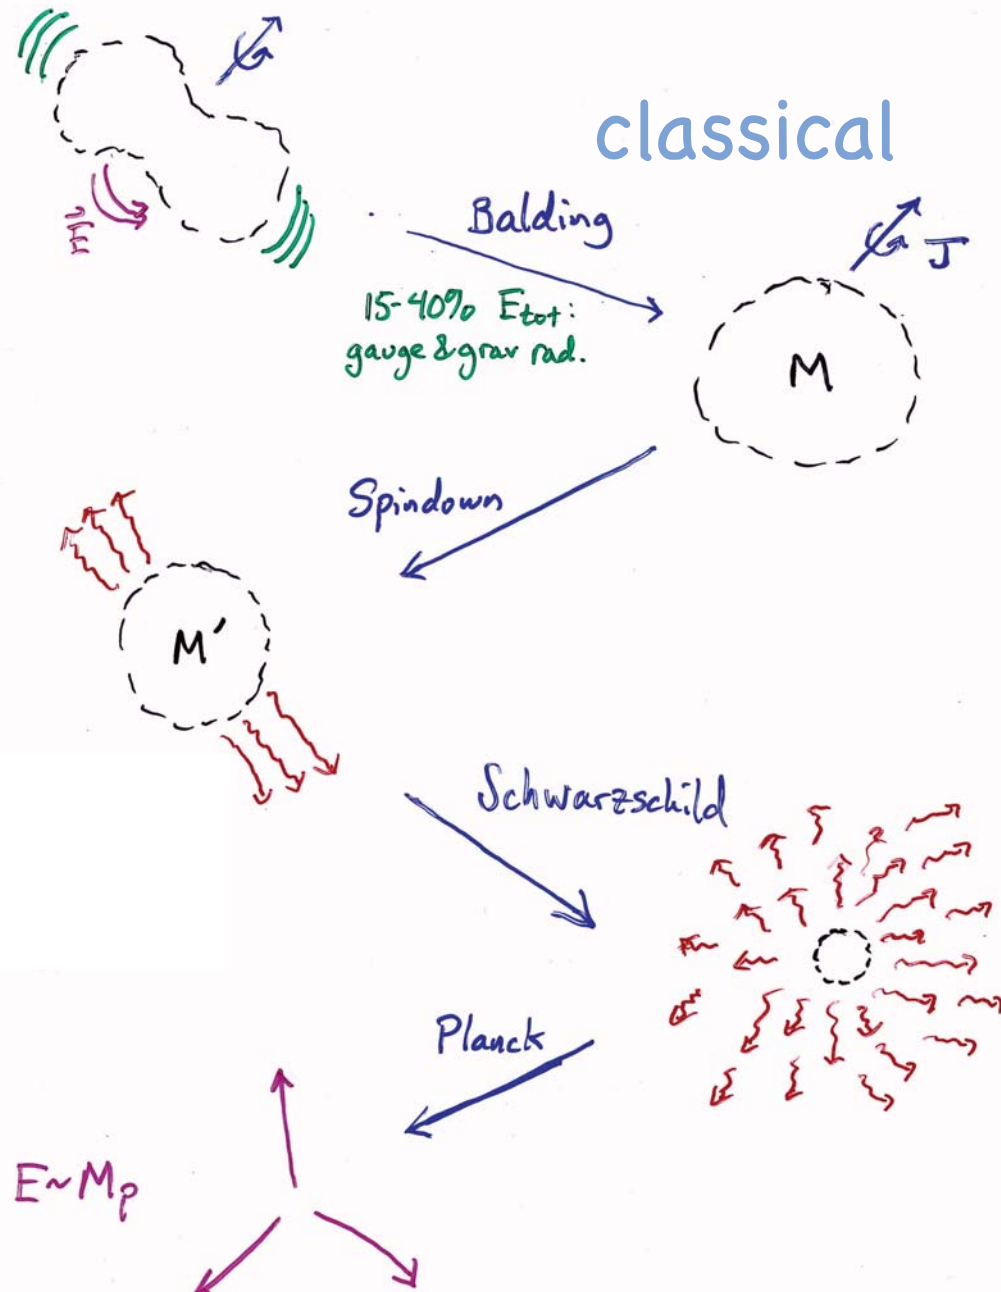 classical
E⃗
Balding
15-40% Etot:
gauge & grav rad.
J
M
Spindown
M′
Schwarzschild
Planck
E~Mp